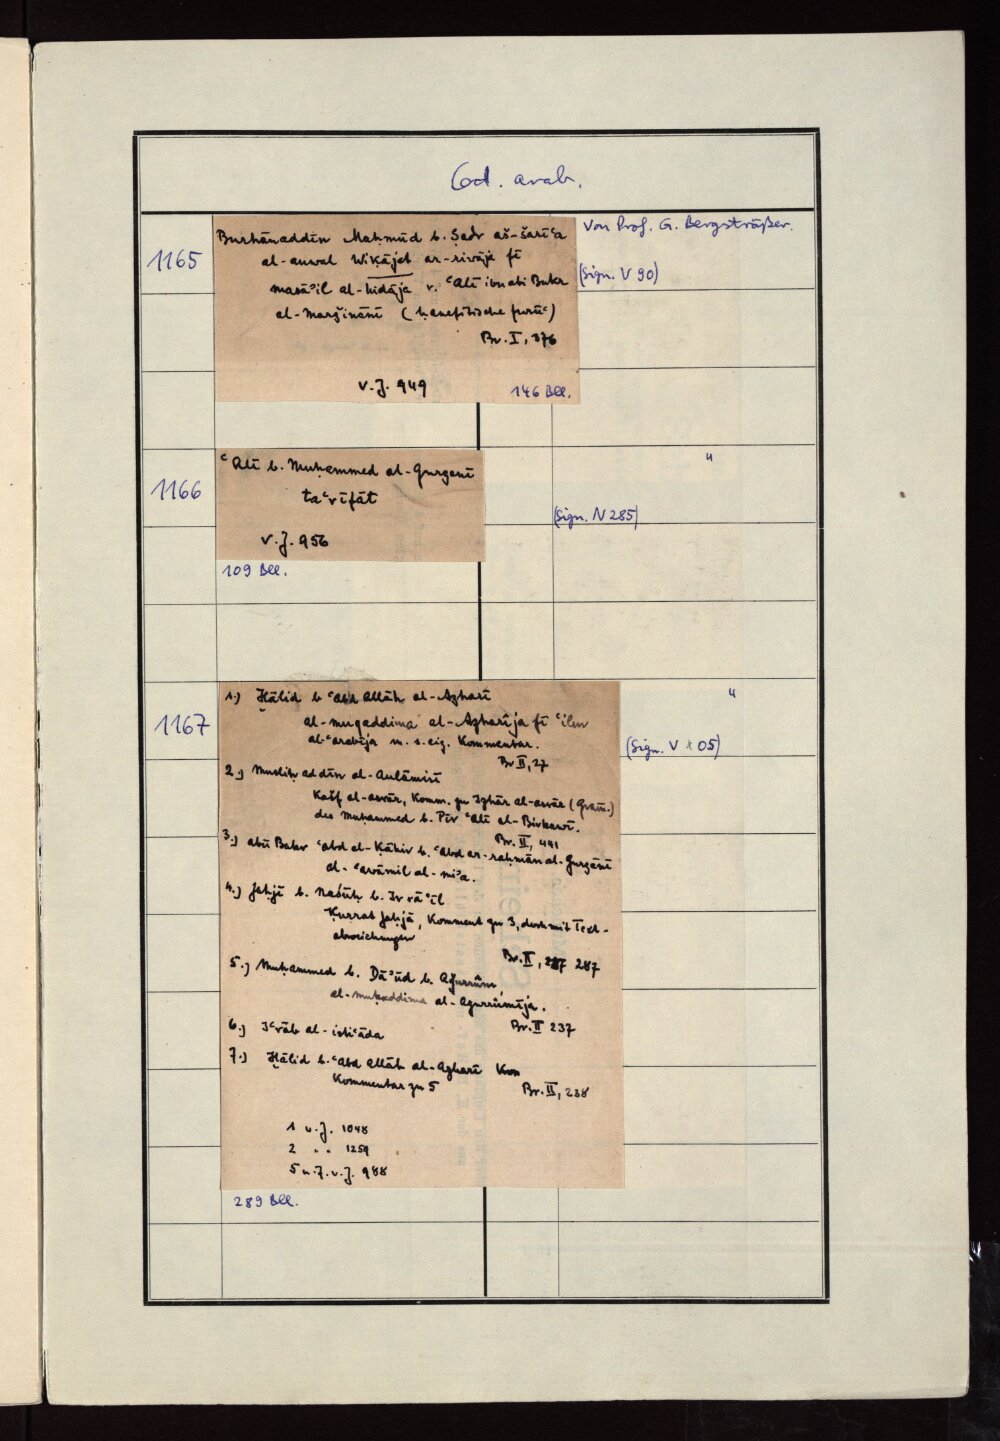 Cod. arab.
1165
Burhānaddīn Maḥmūd b. Ṣadr aš-šarīʿa
al-auwal Wiḳājet ar-rivāje fī
masāʾil al-hidāja v. ʿAlī ibn abi Bekr
al-Marġinānī (ḥanefitische furūʿ)
Br. I, 376
v. J. 949
146 Bll.
Von Prof. G. Bergsträßer.
(Sign. V 90)
1166
ʿAlī b. Muḥammed al-Ǧurǧānī
taʿrīfāt
v. J. 956
109 Bll.
"
(Sign. N 285)
1167
1.) Ḫālid b ʿabd Allāh al-Azharī
al-muqaddima al-Azharīja fī ʿilm
al-ʿarabīja m. s. eig. Kommentar.
Br II, 27
2.) Musliḥ addīn al-Aulāmišī
Kašf al-asrār, Komm. zu Iẓhār al-asrār (Gram.)
des Muḥammed b. Pīr ʿAlī al-Birkawī.
Br. II, 441
3.) abū Bakr ʿabd al-Ḳāhir b. ʿabd ar-raḥmān al-Ǧurǧānī
al-ʿavāmil al-miʾa.
4.) Jaḥjā b. Naṣūḥ b. Isrāʾīl
Ḳurrat Jaḥjā, Komment zu 3, doch mit Text-
abweichungen
Br. II, 287
5.) Muḥammed b. Dāʾūd b. Aǧurrūm,
al-muḳaddima al-Aǧurrūmīja.
Br. II 237
6.) Iʿrāb al-istiʿāda
7.) Ḫālid b. ʿabd Allāh al-Azharī
Kommentar zu 5
Br. II, 238
1 v. J. 1048
2 " " 1259
5 u. 7. v. J. 988
289 Bll.
"
(Sign. V 05)